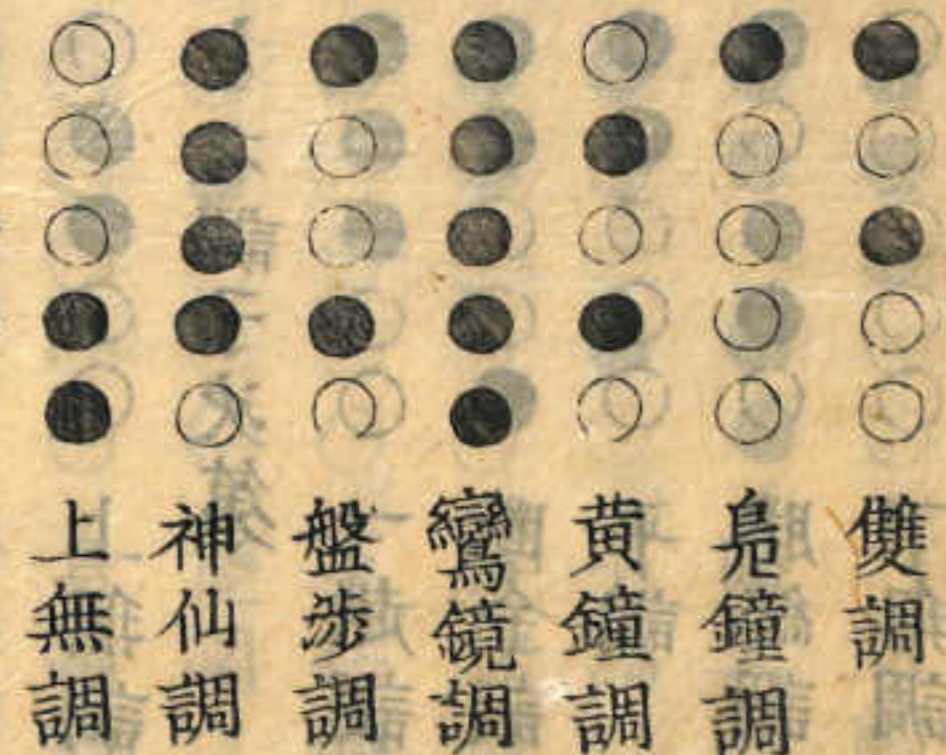 雙調
鳧鐘調
黄鐘調
鸞鏡調
盤渉調
神仙調
上無調